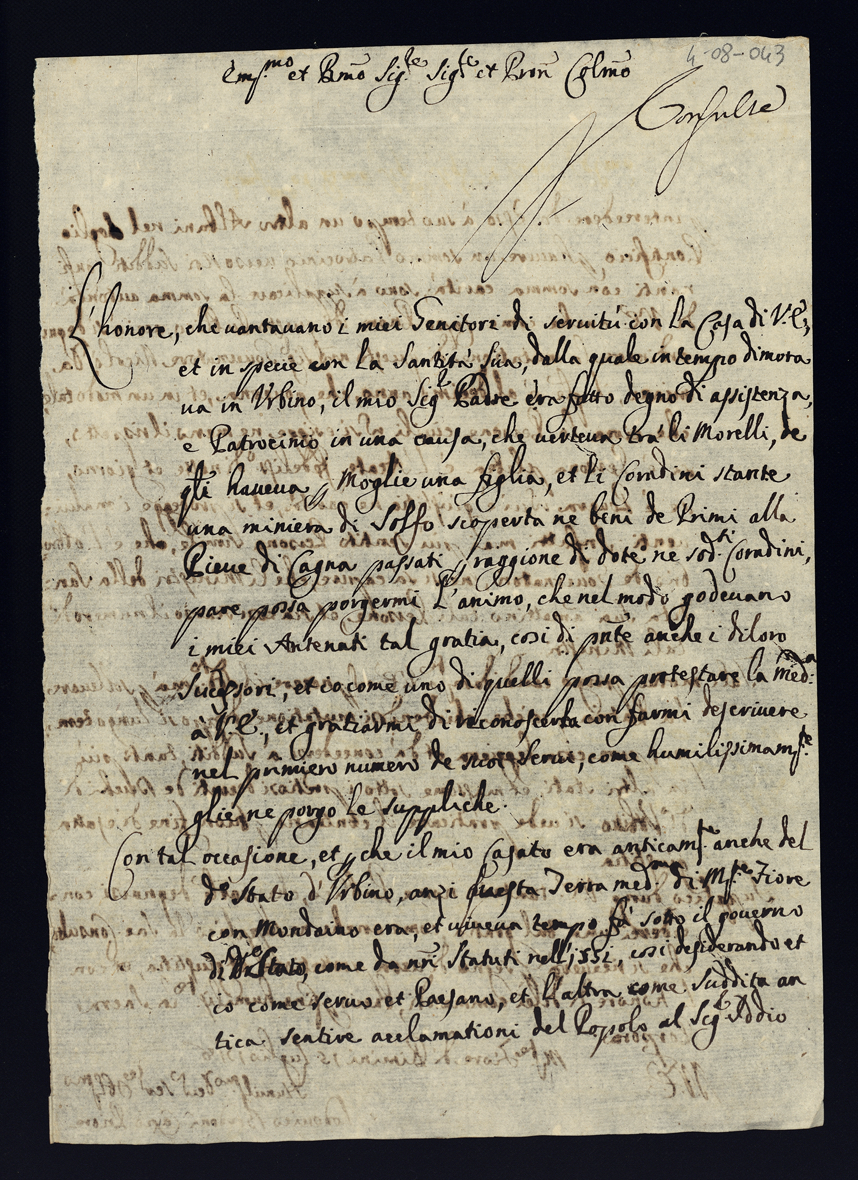 4-08-043
Em.mo et R.mo Sig.re Sig.re et Pron Colmo
Consulte
L'honore, che vantavano i miei Genitori di servitù con la Casa di V. E,
et in specie con la Santità Sua, dalla quale in tempo dimora
va in Vrbino, il mio Sig.r Padre era fatto degno di assistenza,
e Patrocinio in una causa, che verteva trà li Morelli, de
q.li haveva p Moglie una figlia, et li Coradini stante
una miniera di Solfo scoperta ne beni de Primi alla
Pieve di Cagna passati p raggione di dote ne sod.ti Coradini,
pare possa porgermi l'animo, che nel modo godevano
i miei Antenati tal gratia, così di pnte anche i di loro
Successori, et io come uno di quelli possa protestare la med.a
à V. E., et gratiarmi di riconoscerla con farmi descrivere
nel primiero numero de suoi Servi, come humilissimam.te
glie ne porgo le suppliche.
Con tal occasione, et p che il mio Casato era anticam.te anche del
d.o Stato d'Vrbino, anzi questa Terra med.ma di M.te Fiore
con Mondaino era, et viveva tempo fà sotto il governo
di d.o Stato, come da nri Statuti nell'1551, così desiderando et
io come servo et Paesano, et l'altra come suddita an
tica sentire acclamationi del Popolo al Sig.r Iddio